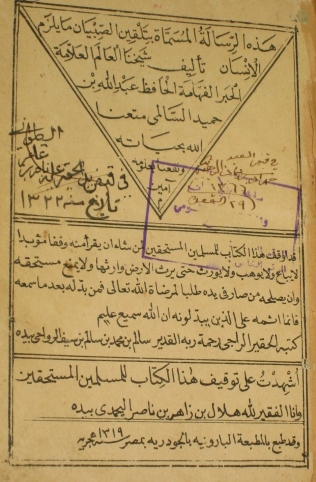 هذه الرسالة المسماة بتلقين الصبيان ما يلزم
الإنسان تأليف شيخنا العالم العلامة
الحبر الفهامة الحافظ عبد الله بن
حميد السالمي متعنا
الله بحياته
ونفعنا بعلومه
امين
م
تاريخ سنه ١٣٢٢
قد اوقف هذا الكتاب للمسلمين المستحقين من شاء ان يقرأ منه وقفا مؤبدا
لا يباع ولا يوهب ولا يورث حتى يرث الأرض وارثها ولا يمنع مستحقه
وان يصلحه من صار في يده طلبا لمرضاة الله تعالى فمن بدله بعد ما سمعه
فانما اثمه على الذين يبدلونه ان الله سميع عليم
كتبه الحقير الراجي رحمة ربه القدير سالم بن محمد بن سالم بن سيف الرواحي بيده
أشهدت على توقيف هذا الكتاب للمسلمين المستحقين
وانا الفقير لله هلال بن زاهر بن ناصر اليحمدي بيده
وقد طبع بالمطبعة البارونيه بالجودريه بمصر ١٣١٩ هجريه